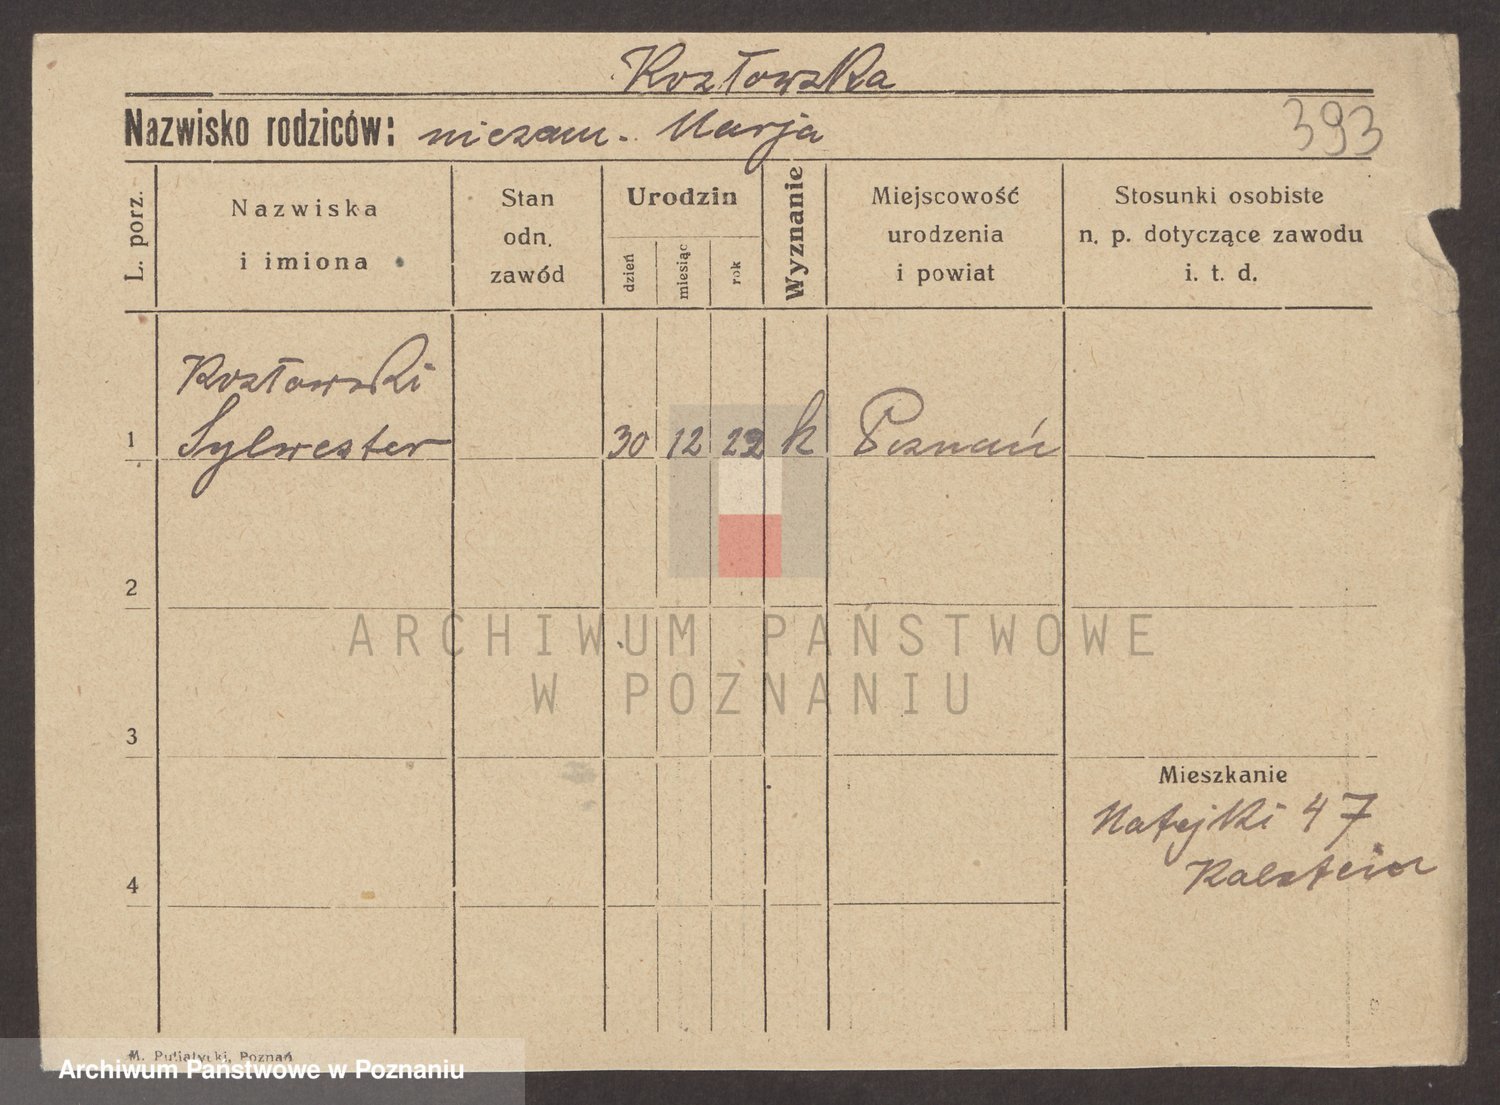 Kozłowska
Nazwisko rodziców: niezam. Marja
393
L. porz.
Nazwiska
i imiona
Stan
odn.
zawód
Urodzin
dzień
miesiąc
rok
Wyznanie
Miejscowość
urodzenia
i powiat
Stosunki osobiste
n. p. dotyczące zawodu
i. t. d.
Kozłowski
1 Sylwester 30 12 22 k Poznań
2
ARCHIWUM PAŃSTWOWE
W POZNANIU
3
Mieszkanie
Matejki 47
4
M. Putiatycki, Poznań
Archiwum Państwowe w Poznaniu